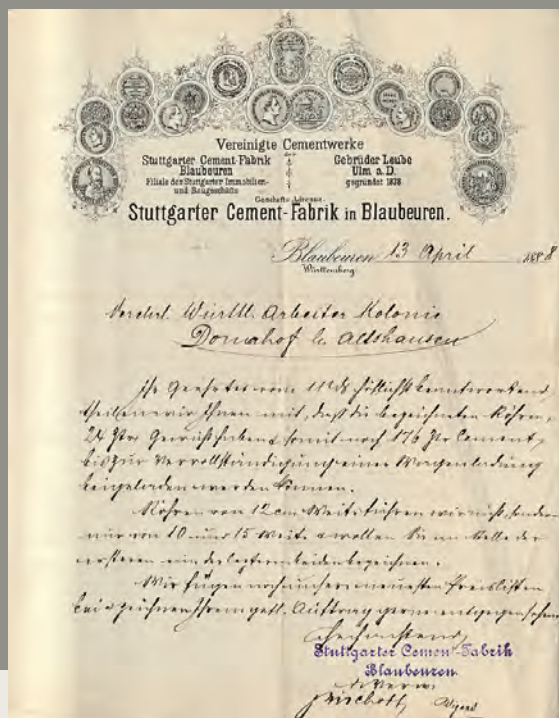 Vereinigte Cementwerke
der
Stuttgarter Cement-Fabrik
Blaubeuren
Filiale der Stuttgarter Immobilien-
und Baugeschäfts
Gebrüder Leube
Ulm a. D.
gegründet 1838
Geschäfts-Adresse:
Stuttgarter Cement-Fabrik in Blaubeuren.
Blaubeuren 13 April 1888
Württemberg
Württ. Arbeiter Kolonie
Dornahof b. Altshausen
Ihr Geehrtes vom 11 ds höflichst beantwortend
theilen wir Ihnen mit, daß die bezeichneten Röhren,
24 Ztr Gewicht haben & somit noch 176 Ztr Cement,
bis zur Vervollständigung einer Wagenladung
beigeladen werden können.
Röhren von 12 cm Weite führen wir nicht, sondern
nur von 10 und 15 Weite & wollen Sie an Stelle der
ersteren eine der letzteren beiden bezeichnen.
Wir fügen noch unsere neuesten Preislisten
bei & zeichnen Ihrem gefl. Auftrag gerne entgegensehend
Hochachtend
Stuttgarter Cement-Fabrik
Blaubeuren.